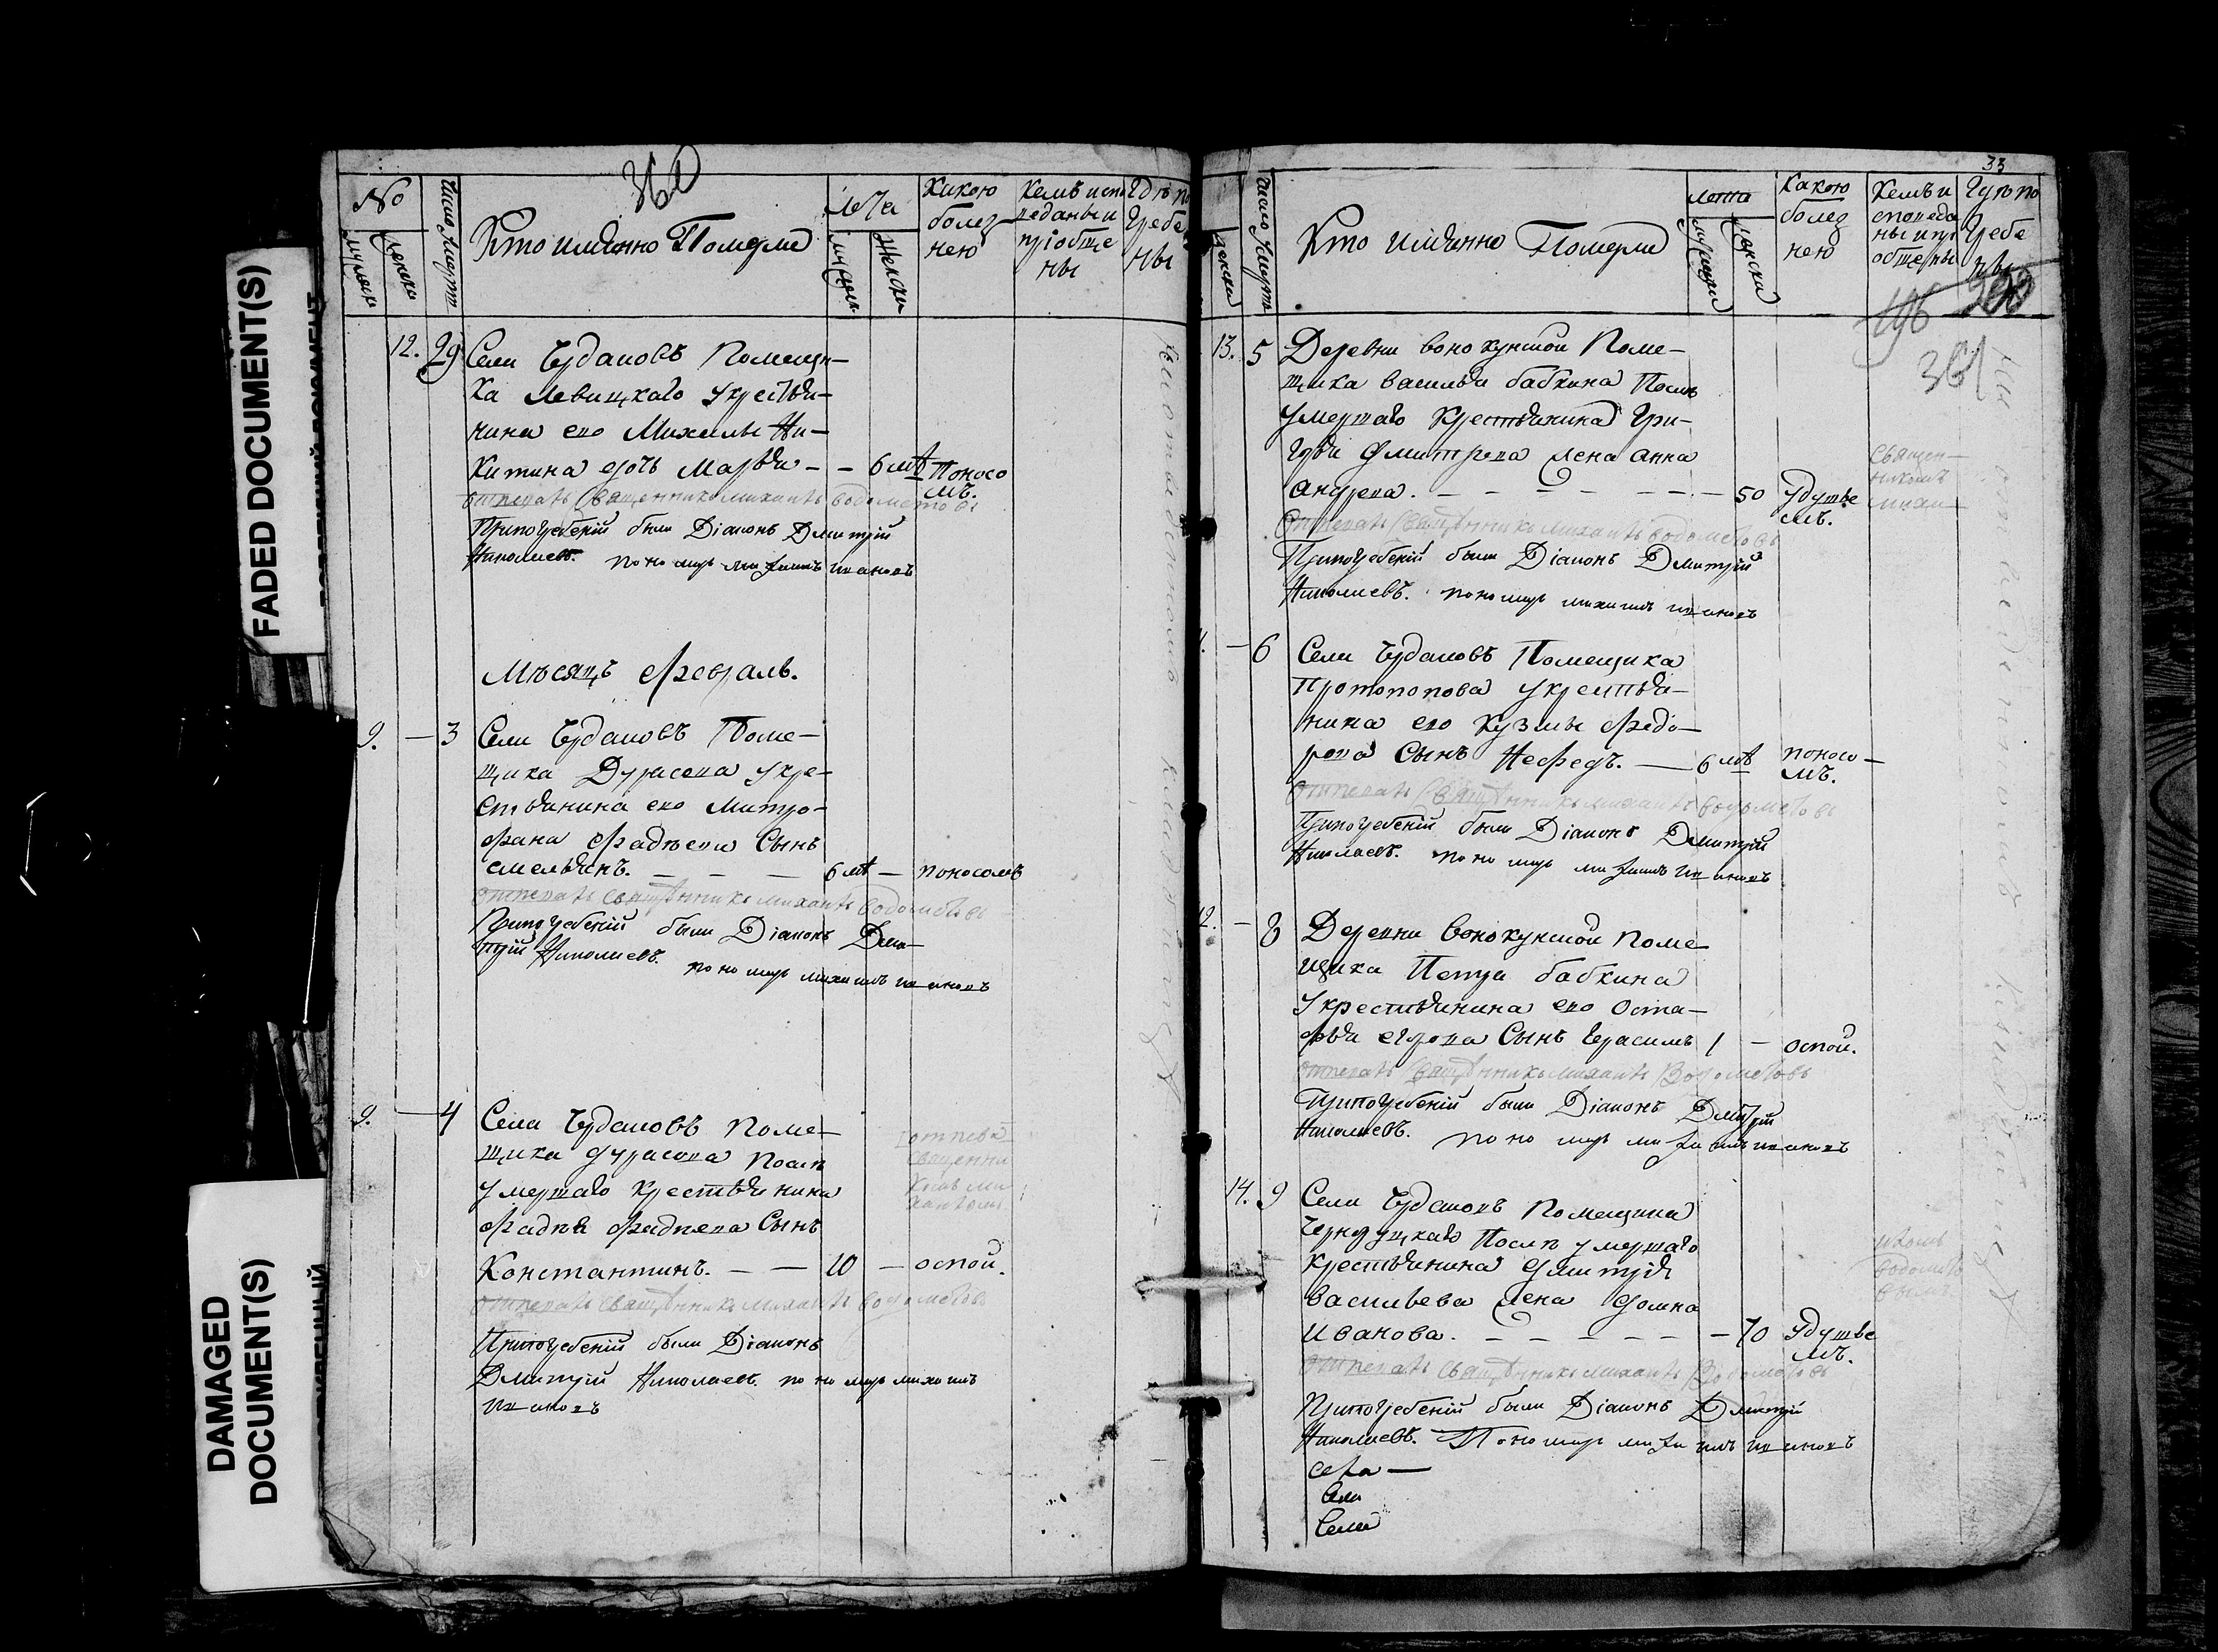 FADED DOCUMENT(S)
DAMAGED
DOCUMENT(S)
360
№
мужеска
женска
Число Смерт
Кто имянно Померли
Лета
женска
Какою
болез
нею
Кемъ испо
ведан и
приобще
ны
Где по
гребе
ны
12. 29 Села Чудановъ Помещи-
ка Левицкаго у крестья-
нина его Михаилы Ни-
китина дочь Марья - - 6 лѣ Поносо
мъ.
отпевалъ священникъ михаилъ водометовъ
При погребеніи были Діаконъ Дмитрій
Николаевъ. пономарь михаилъ ивановъ
Мѣсяцъ Февраль.
9. - 3 Села Чудановъ Поме-
щика Дурасова у кре-
стьянина его Митро-
фана Фадѣева Сынъ
емельянъ. - - - 6 лѣ - поносомъ
отпевалъ священникъ михаилъ водометовъ
При погребеніи были Діаконъ Дми-
трій Николаевъ. пономарь михаилъ ивановъ
9. - 4 Села Чудановъ Поме-
щика Дурасова послѣ
умершаго крестьянина
Фадѣя Фадѣева Сынъ
Константинъ. - - 10 - оспой.
отпева
священни
комъ ми
хаиломъ
отпевалъ священникъ михаилъ водометовъ
При погребеніи были Діаконъ
Дмитрій Николаевъ. пономарь михаилъ
ивановъ
33
женска
Число Смерть
Кто имянно Померли
лѣта
женска
Какою
болез
нею
Кемъ и
споведа
ны и при
общены
Где по
гребе
ны
196 200
361
13. 5 Деревни вонокунской Поме-
щика василья бабкина Послѣ
умершаго Крестьянина Гри-
горья Дмитрева жена анна
андрева. - - - - - - 50 Удушье
мъ.
Священ-
никомъ
михаи-
отпевалъ священникъ михаилъ водометовъ
При погребеніи были Діаконъ Дмитрій
Николаевъ. пономарь михаилъ ивановъ
- 6 Села Чудановъ Помещика
Протопопова у крестья-
нина его Кузмы Федо-
рова Сынъ Нефедъ. - 6 лѣ поносо-
мъ.
отпевалъ священникъ михаилъ водометовъ
При погребеніи были Діаконъ Дмитрій
Николаевъ. пономарь михаилъ ивановъ
12. - 8 Деревни Вонокунской Поме-
щика Петра бабкина
у крестьянина его Оста-
фья егорова Сынъ Герасимъ 1 - оспой.
отпевалъ священникъ михаилъ Водометовъ
При погребеніи были Діаконъ Дмитрій
Николаевъ. пономарь михаилъ ивановъ
14. 9 Села Чудановъ Помещика
Послѣ умершаго
Крестьянина Дмитрія
Васильева жена Домна
Иванова. - - - - - - 70 Удушье
мъ.
отпевалъ священникъ михаилъ Водометовъ
При погребеніи были Діаконъ Дмитрій
Николаевъ. Пономарь михаилъ ивановъ
села -
Села
Села